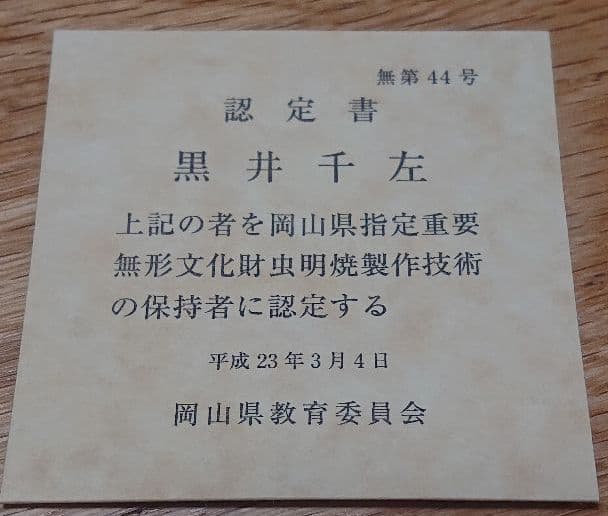 無第44号
認定書
黒井千左
上記の者を岡山県指定重要
無形文化財虫明焼製作技術
の保持者に認定する
平成23年3月4日
岡山県教育委員会